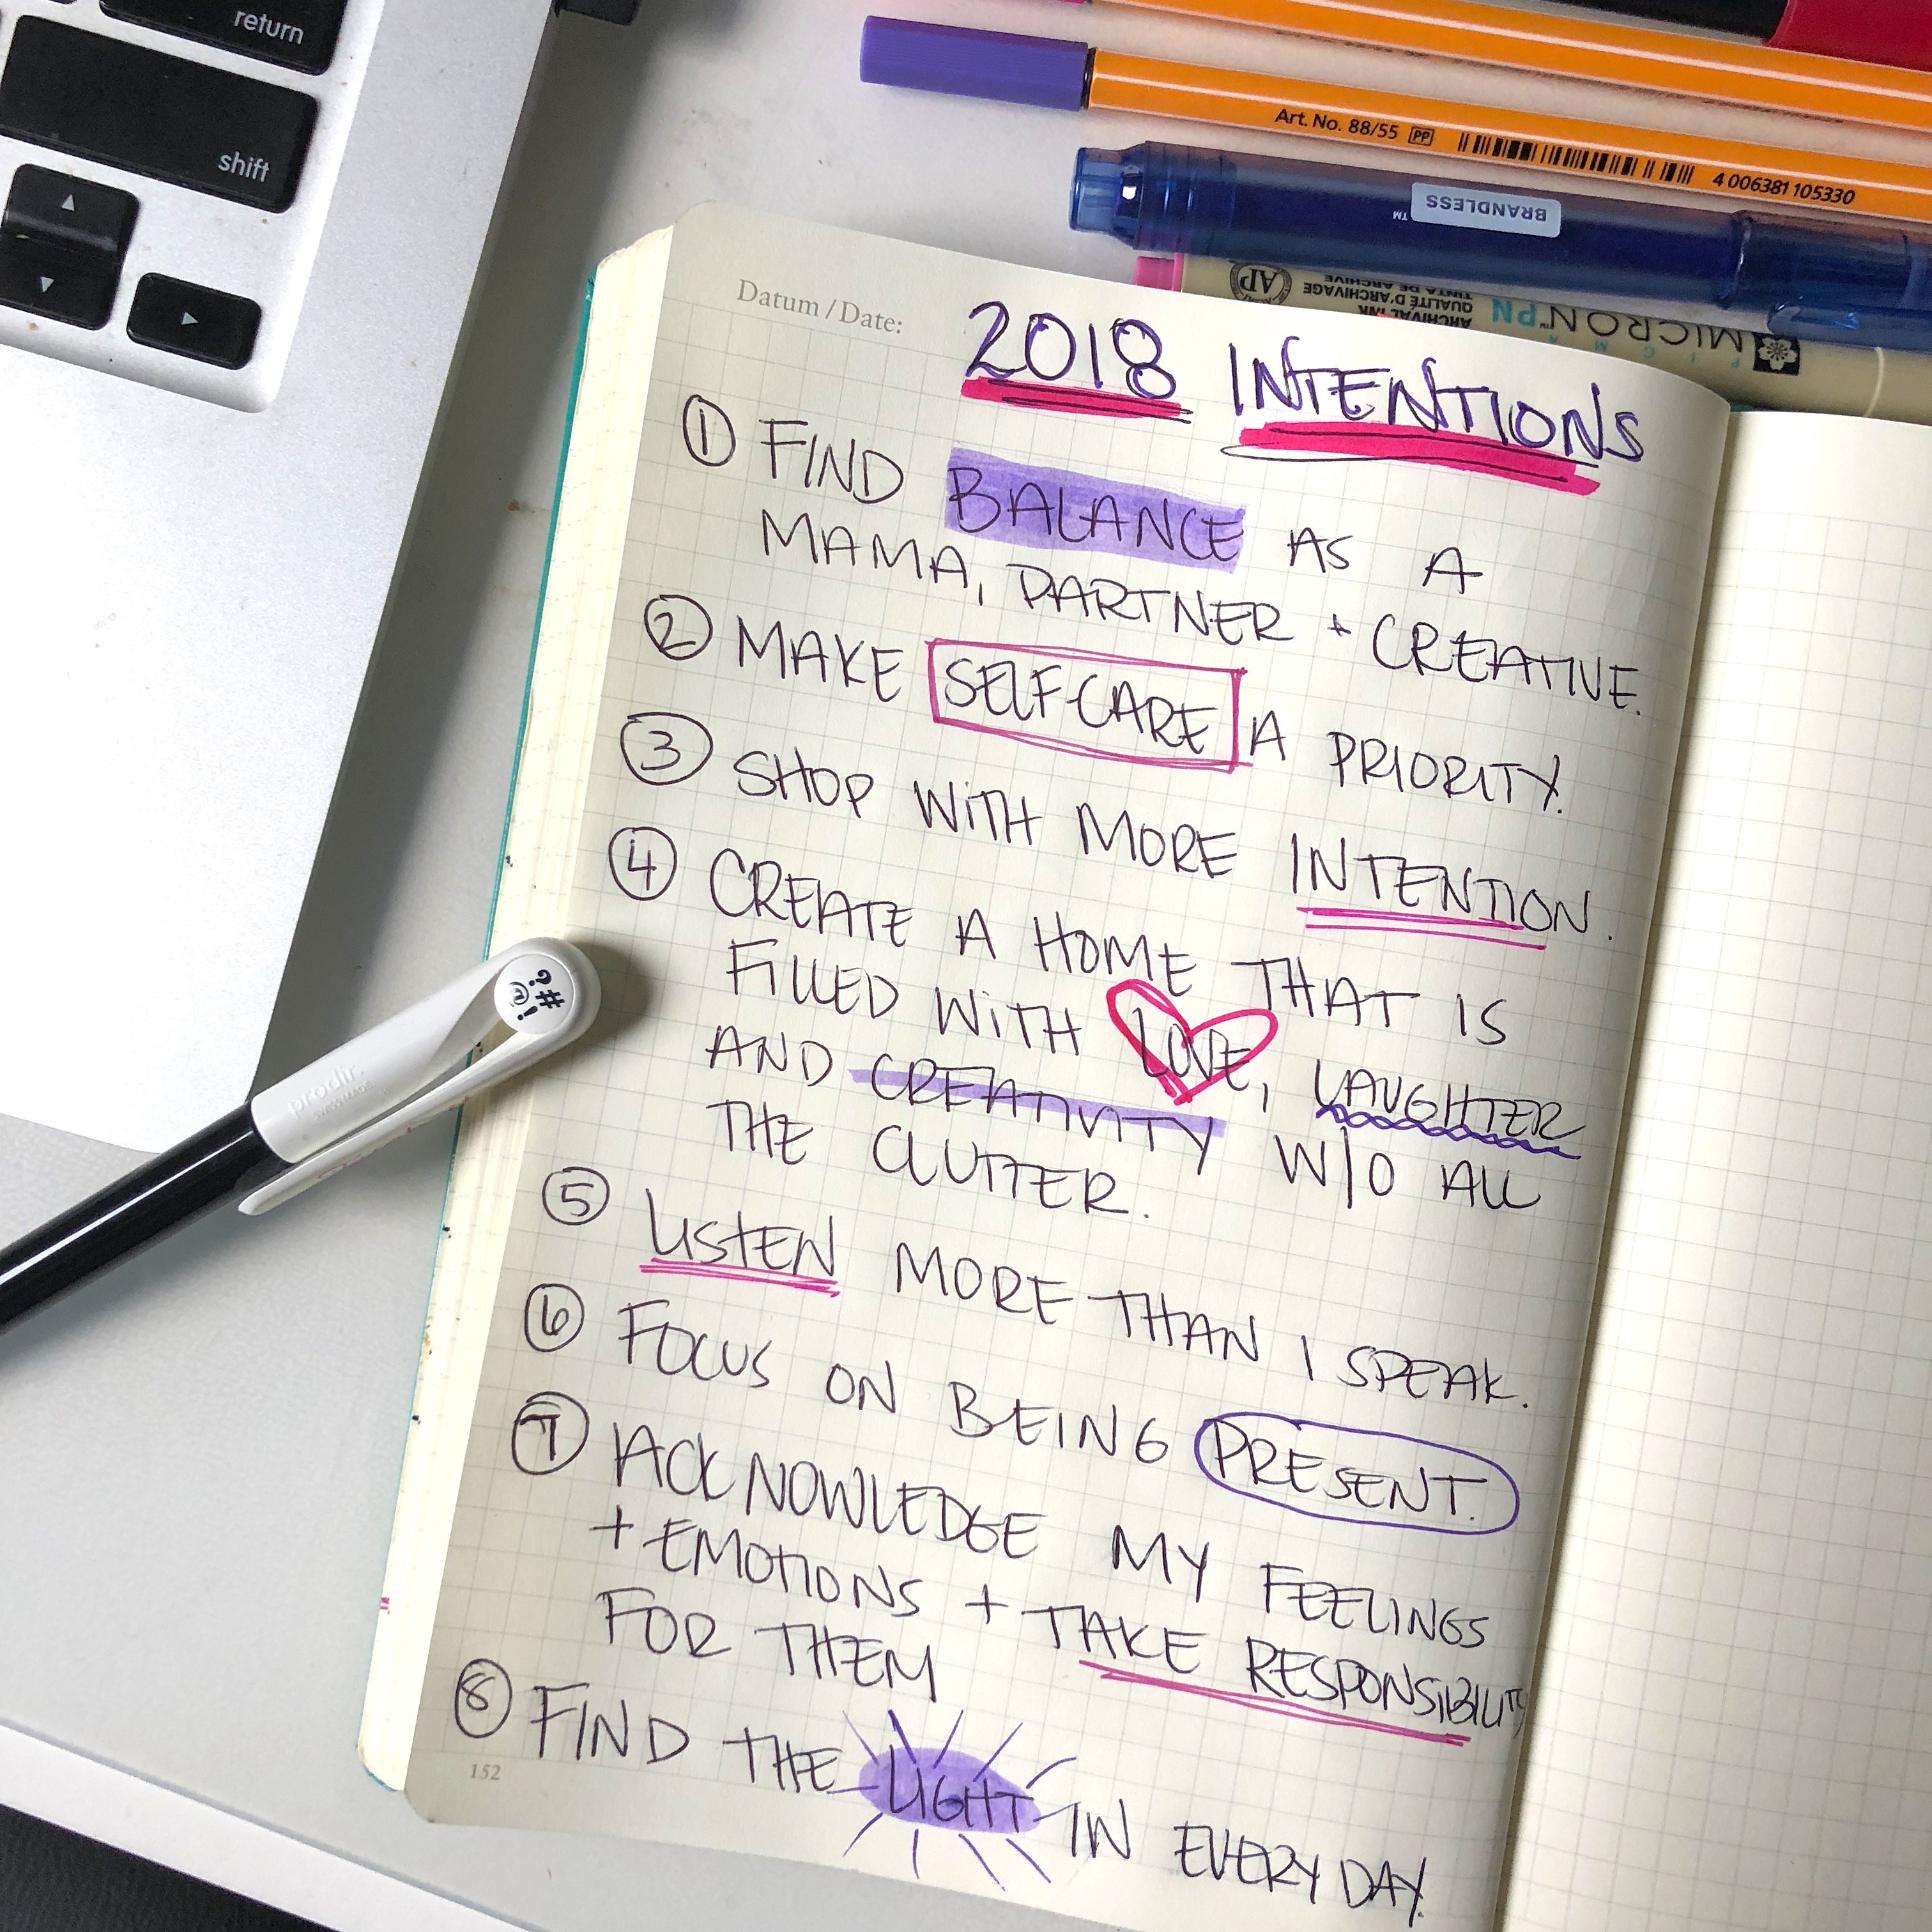 return
shift
Art. No. 88/55 PP
4 006381 105330
BRANDLESS
TM
AP
ARCHIVAL INK
QUALITÉ D'ARCHIVAGE
TINTA DE ARCHIVE
MICRON PN
Datum / Date:
2018 INTENTIONS
1 FIND BALANCE AS A
MAMA, PARTNER + CREATIVE.
2 MAKE SELF-CARE A PRIORITY.
3 SHOP WITH MORE INTENTION.
4 CREATE A HOME THAT IS
FILLED WITH LOVE, LAUGHTER
AND CREATIVITY W/O ALL
THE CLUTTER.
5 LISTEN MORE THAN I SPEAK.
6 FOCUS ON BEING PRESENT.
7 ACKNOWLEDGE MY FEELINGS
+ EMOTIONS + TAKE RESPONSIBILITY
FOR THEM
8 FIND THE LIGHT IN EVERY DAY.
152
?#@!
prodir.
SWISS MADE